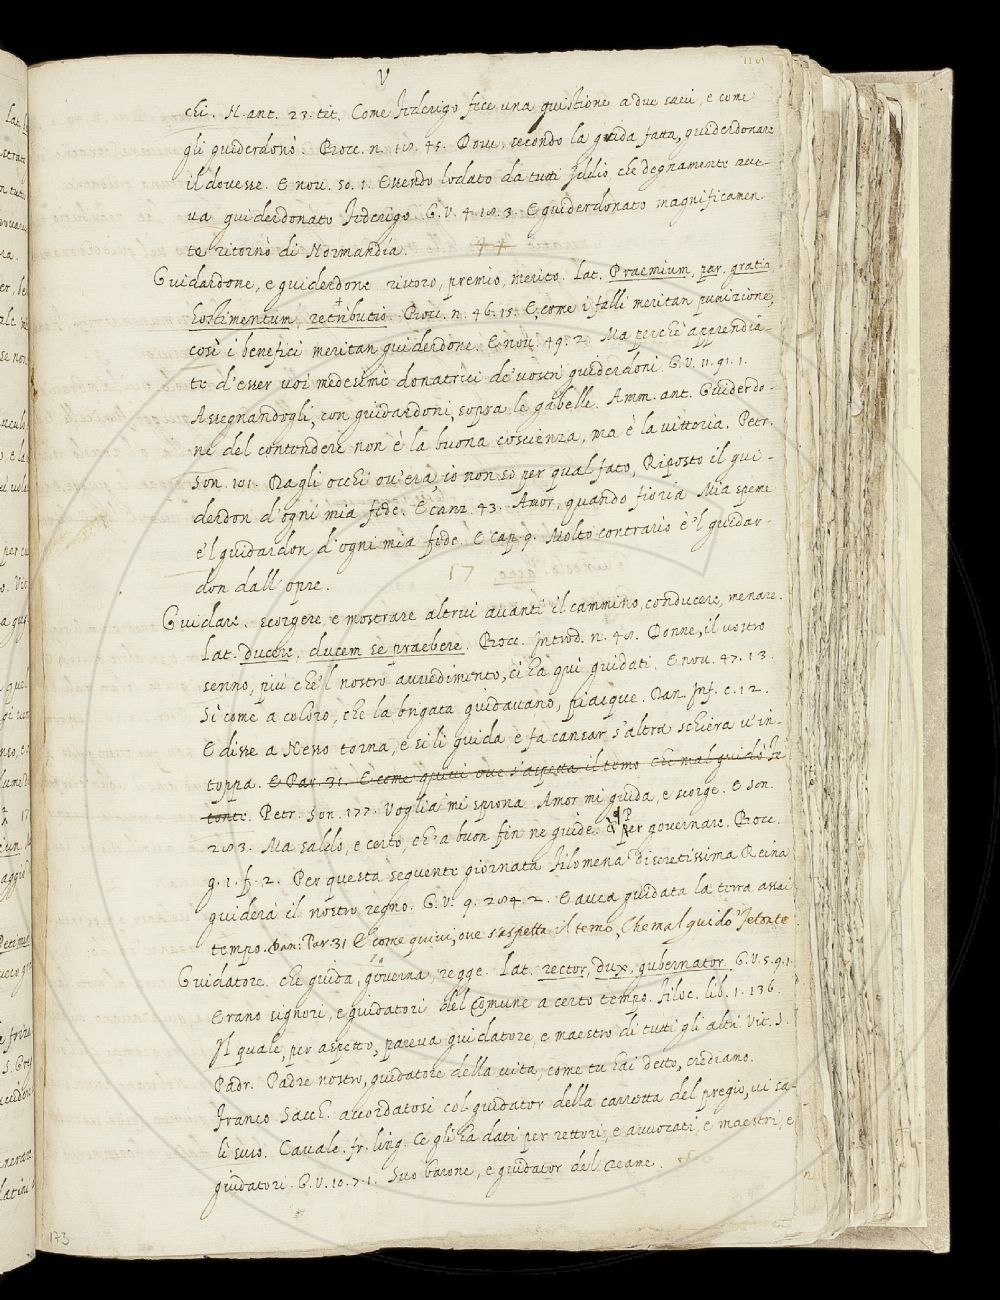 V
chi. N. ant. 23. tit. Come Federigo fece una quistione a due savi, e come
gli guiderdonò. Bocc. n. 18. 45. Dove, secondo la grida fatta, guiderdonare
il dovesse. E nov. 50. 1. Essendo lodato da tutti Iddio che degnamente ave-
va guiderdonato Federigo G. V. 4. 18. 3. E guiderdonato magnificamen-
te ritornò di Normandia.
Guidardone, e guiderdone ristoro, premio, merito. Lat. Praemium, par. gratia,
hostimentum, retributio. Bocc. n. 46. 15. E come i falli meritan punizione,
così i benefici meritan guiderdone. E nov. 49. 2. Ma perchè apprendia-
te d'esser voi medesime donatrici de' vostri guiderdoni. G. V. 11. 91. 1.
Assegnandogli, con guidardoni, sopra le gabelle. Amm. ant. Guiderdo-
ne del contendere non è la buona coscienza, ma è la vittoria. Petr.
Son. 101. Dagli occhi ov'era io non so per qual fato, Riposto il gui-
derdon d'ogni mia fede. E canz. 43. Amor, quando fioria Mia speme
e'l guidardon d'ogni mia fede. E cap. 9. Molto contrario è 'l guidar-
don dall'opre.
17
Guidare. scorgere e mostrare altrui avanti il cammino, conducere, menare.
Lat. ducere, ducem se praebere. Bocc. Introd. n. 48. Donne, il vostro
senno, più che 'l nostro avvedimento, ci ha qui guidati. E nov. 47. 13.
Sì come a coloro, che la brigata guidavano, piacque. Dan. Inf. c. 12.
E disse a Nesso torna, e sì li guida e fa cansar, s'altra schiera v'in-
toppa. E Par. 31. E come quivi ove s'aspetta il temo Che mal guidò Fe
tonte. Petr. Son. 177. Voglia mi sprona Amor mi guida, e scorge. E son.
283. Ma sallo, e certo, ch'a buon fin ne guide. ¶ per governare. Bocc.
g. 1. f. 2. Per questa seguente giornata Filomena discretissima Reina
guiderà il nostro regno. G. V. 9. 284. 2. E avea guidata la terra assai
tempo. Dan: Par. 31 E come quivi, ove s'aspetta il temo, Che mal guidò Fetonte
Guidatore. che guida, governa, regge. Lat. rector, dux, gubernator. G. V. 5. 9. 1.
Erano signori, e guidatori del Comune a certo tempo. Filoc. lib. 1. 136.
Il quale, per aspetto, pareva guidatore, e maestro di tutti gli altri. Vit. S.
Padr. Padre nostro, guidatore della vita, come tu hai detto, crediamo.
Franco Sacch. accordatosi col guidator della carretta del pregio, vi sa-
lì suso. Cavalc. fr. ling. Ce gli ha dati per rettori, e avvocati, e maestri, e
guidatori. G. V. 10. 7. 1. Suo barone, e guidator del Reame.
173